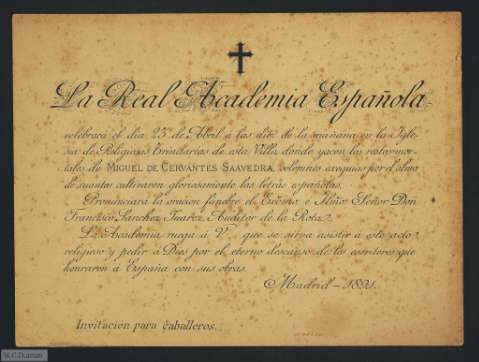 La Real Academia Española
celebrará el día 23 de Abril á las diez de la mañana en la Igle-
sia de Religiosas Trinitarias de esta Villa, donde yacen los restos mor-
tales de MIGUEL DE CERVANTES SAAVEDRA, solemnes exequias por el alma
de cuantos cultivaron gloriosamente las letras españolas.
Pronunciará la oración fúnebre el Excmo. é Iltmo. Señor Don
Francisco Sánchez Juárez, Auditor de la Rota.
La Academia ruega á V. que se sirva asistir á este acto
religioso y pedir á Dios por el eterno descanso de los escritores que
honraron á España con sus obras.
Madrid - 1891.
Invitación para Caballeros.